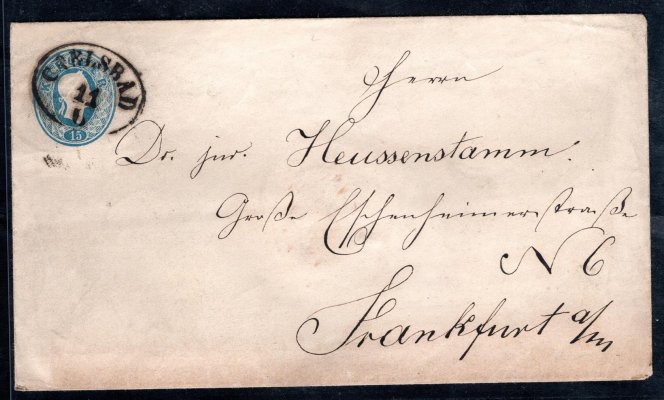 CARLSBAD
11
15
Herrn
Dr. jur. Heussenstamm.
Große Eschenheimerstraße
N 6
Frankfurt a/m